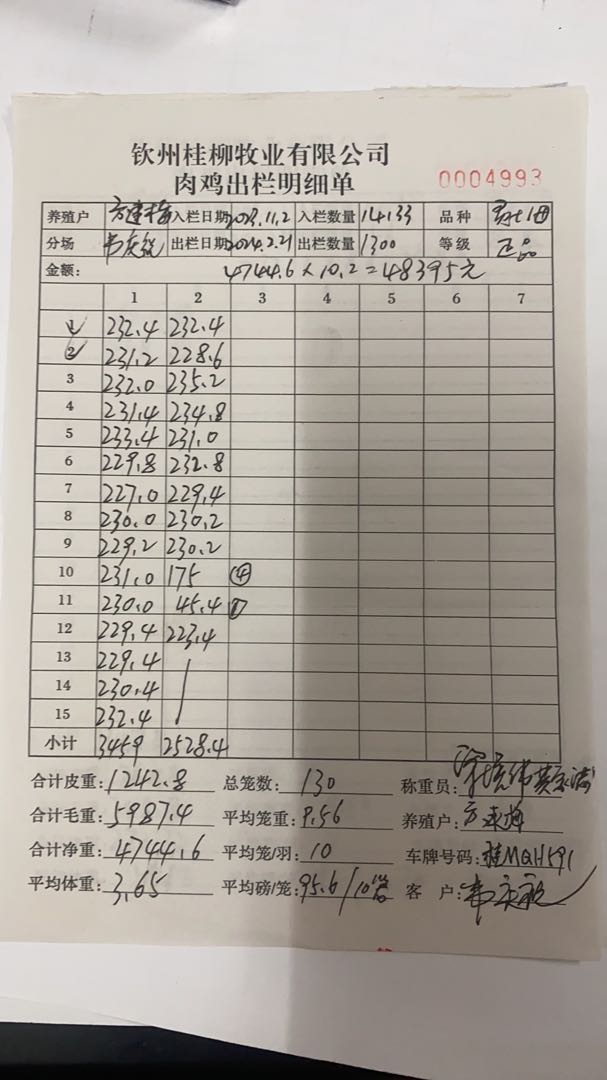 钦州桂柳牧业有限公司
肉鸡出栏明细单
0004993
养殖户 方建梅 入栏日期 2023.11.2 入栏数量 14133 品种
分场 出栏日期 2024.2.21 出栏数量 1300 等级 正品
金额: 4744.6×10.2=48395元
1 2 3 4 5 6 7
1 232.4 232.4
2 231.2 228.6
3 232.0 235.2
4 231.4 234.8
5 233.4 231.0
6 229.8 232.8
7 227.0 229.4
8 230.0 230.2
9 229.2 230.2
10 231.0 175 ④
11 230.0 45.4 ①
12 229.4 223.4
13 229.4
14 230.4
15 232.4
小计 3459 2528.4
合计皮重: 1242.8 总笼数: 130 称重员:
合计毛重: 5987.4 平均笼重: 9.56 养殖户: 方建梅
合计净重: 4744.6 平均笼/羽: 10 车牌号码: 桂MQH591
平均体重: 3.65 平均磅/笼: 95.6/10笼 客户: